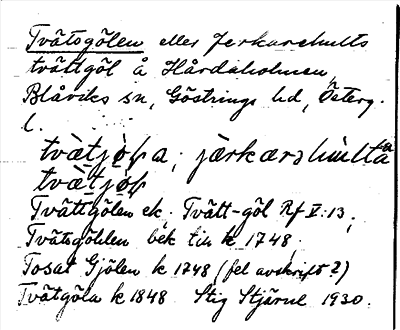 Tvätsgölen eller Jerkarehults
tvättgöl å Hårdaholmen,
Blåviks sn, Göstrings hd, Österg.
l.
tvätjö̱ɭa; järkarshulta
tvätjöɭ
Tvättgölen ek. Tvätt-göl Rf V:13,
Tvätsgöhlen bek till k 1748.
Tosat Gjölen k 1748 (fel avskrift?)
Tvätgöla k 1848 Stig Stjärne 1930.